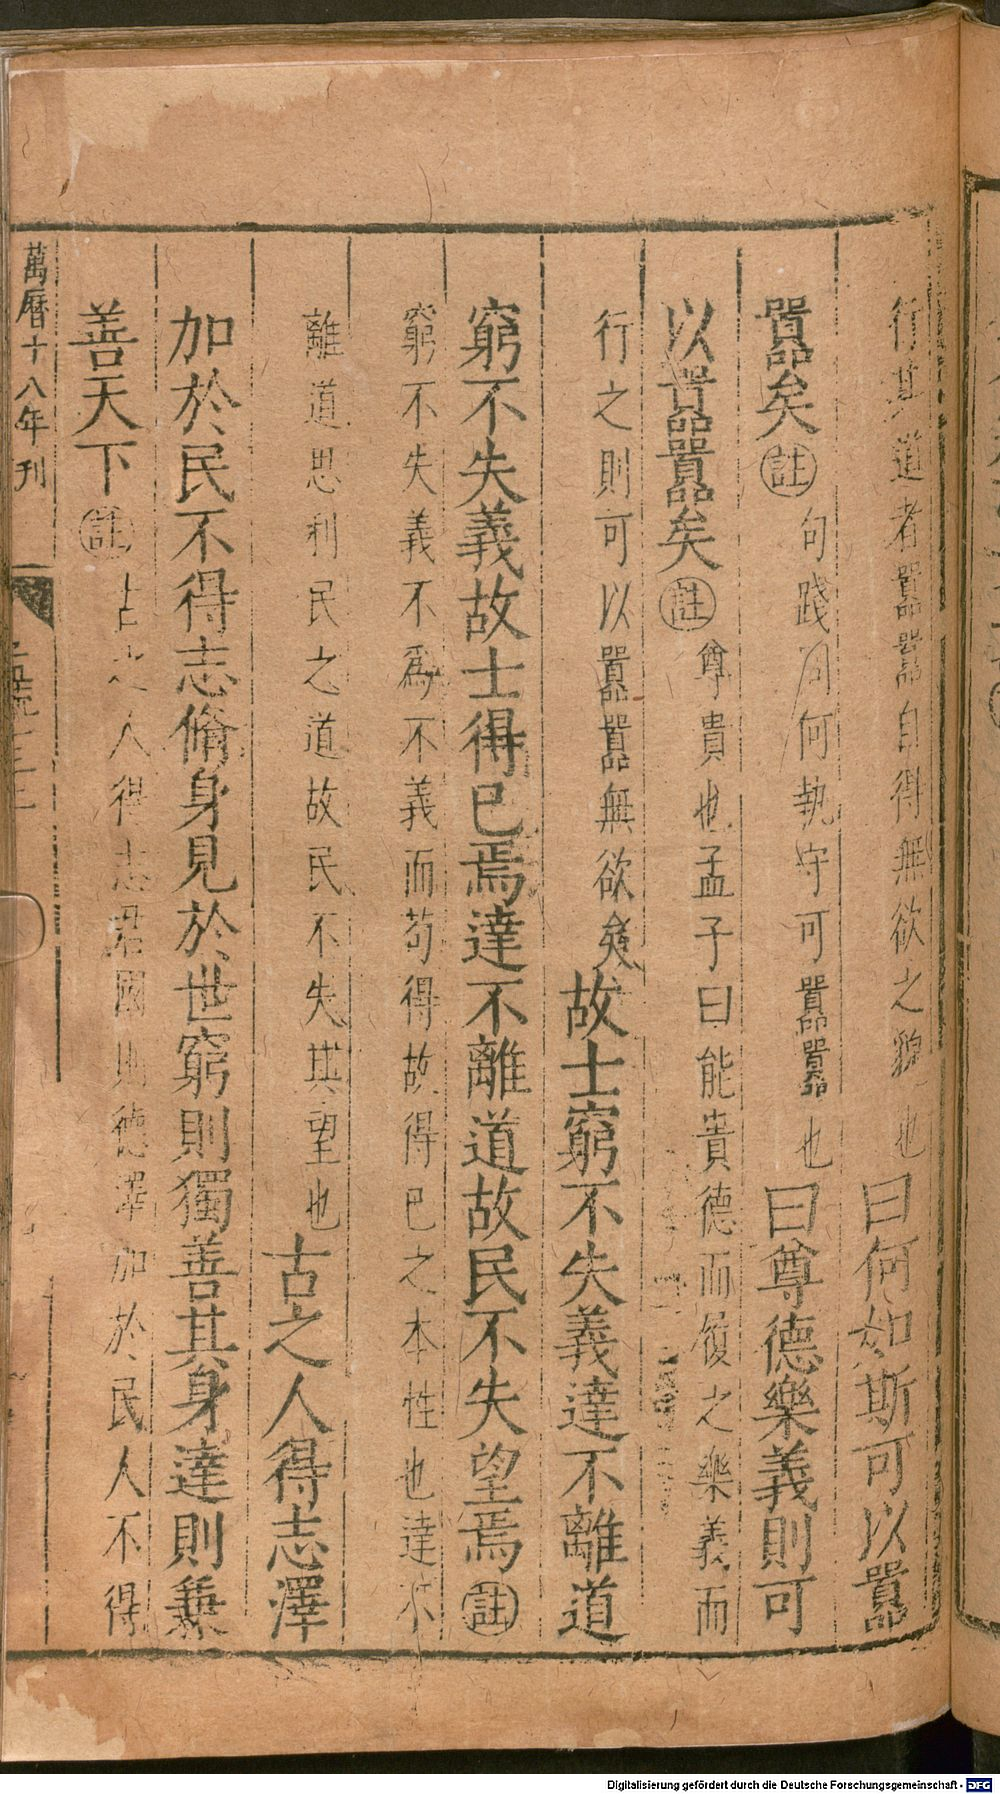 行其道者囂囂自得無欲之貌也曰何如斯可以囂
囂矣註句踐問何執守可囂囂也曰尊德樂義則可
以囂囂矣註尊貴也孟子曰能貴德而履之樂義而
行之則可以囂囂無欲矣故士窮不失義達不離道
窮不失義故士得已焉達不離道故民不失望焉註
窮不失義不為不義而苟得故得已之本性也達不
離道思利民之道故民不失其望也古之人得志澤
加於民不得志脩身見於世窮則獨善其身達則兼
善天下註古之人得志君國則德澤加於民人不得
萬曆十八年刊
Digitalisierung gefördert durch die Deutsche Forschungsgemeinschaft - DFG